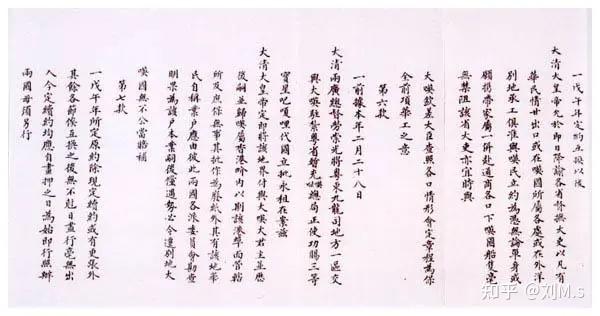 一戊午年定約互換以後
大清大皇帝允於即日降諭各省督撫大吏以凡有
華民情甘出口或在暎國所屬各處或在外洋
別地承工俱准與暎民立約為憑無論單身或
願攜帶家屬一併赴通商各口下暎國船隻毫
無禁阻該省大吏亦宜時與
大暎欽差大臣查照各口情形會定章程為保
全前項華工之意
第六款
一前據本年二月二十八日
大清兩廣總督勞崇光將粵東九龍司地方一區交
與大暎駐紮粵省暫充總局正使功賜三等
寶星巴嗄哩代國立批永租在案茲
大清大皇帝定即將該地界付與大暎大君主並歷
後嗣並歸暎屬香港界內以期該港埠面管轄
所及庶保無事其批作為廢紙外其有該地華
民自稱業戶應由彼此兩國各派委員會勘查
明果為該戶本業嗣後倘遇勢必令遷別地大
暎國無不公當賠補
第七款
一戊午年所定原約除現定續約或有更張外
其餘各節俟互換之後無不尅日盡行毫無出
入今定續約均應自畫押之日為始即行照辦
兩國毋須另行
知乎 @刘M.s